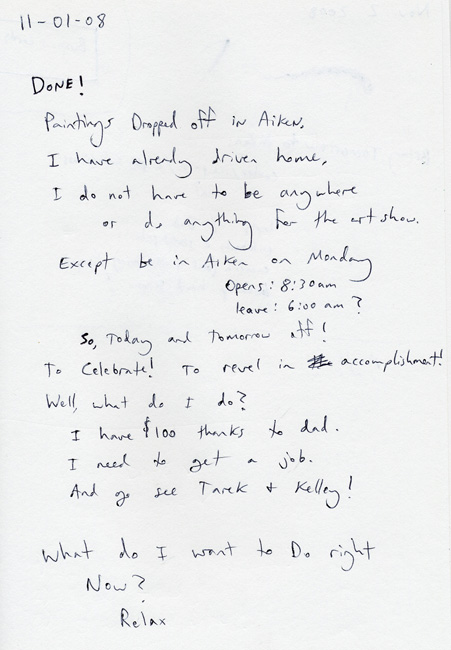 11-01-08
DONE!
Paintings Dropped off in Aiken.
I have already driven home.
I do not have to be anywhere
or do anything for the art show.
Except be in Aiken on Monday
Opens: 8:30am
leave: 6:00 am?
So, Today and tomorrow off!
To Celebrate! To revel in accomplishment!
Well, what do I do?
I have $100 thanks to dad.
I need to get a job.
And go see Tarek & Kelley!
What do I want to Do right
Now?
Relax